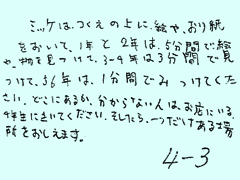 ミッケは、つくえの上に、絵や、おり紙
をおいて、1年と2年は、5分間で絵
や、物を見つけて、3-4年は3分間で見
つけて、56年は、1分間でみつけてくだ
さい。どこにあるか、分からない人は、お店にいる、
4年生にきいてください。そしたら、一つだけある場
所をおしえます。
4-3